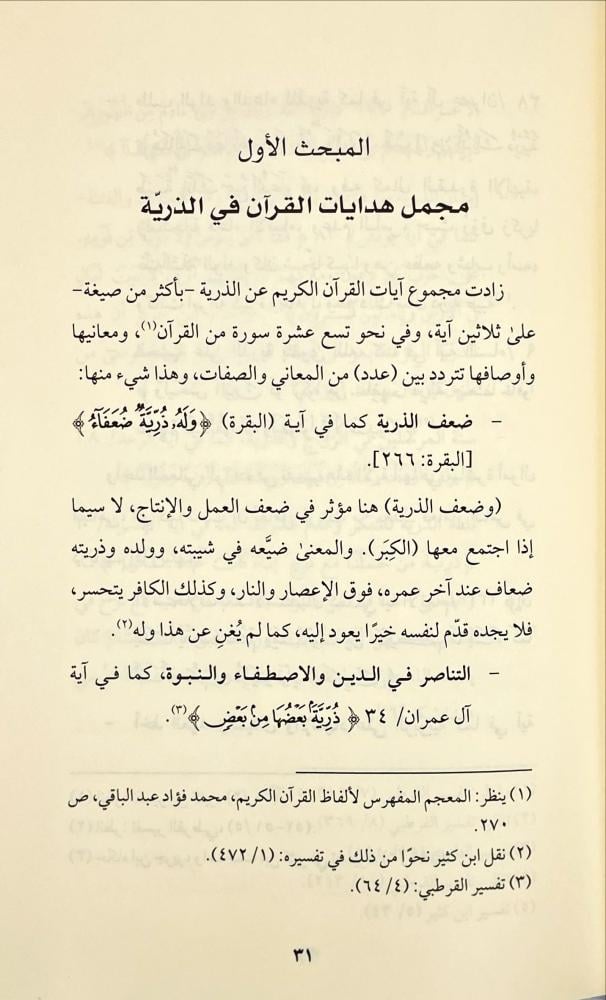 المبحث الأول
مجمل هدايات القرآن في الذريّة
زادت مجموع آيات القرآن الكريم عن الذرية -بأكثر من صيغة-
علىٰ ثلاثين آية، وفي نحو تسع عشرة سورة من القرآن(١)، ومعانيها
وأوصافها تتردد بين (عدد) من المعاني والصفات، وهذا شيء منها:
- ضعف الذرية كما في آية (البقرة) ﴿وَلَهُۥ ذُرِّيَّةٌ ضُعَفَآءُ﴾
[البقرة: ٢٦٦].
(وضعف الذرية) هنا مؤثر في ضعف العمل والإنتاج، لا سيما
إذا اجتمع معها (الكِبَر). والمعنىٰ ضيَّعه في شيبته، وولده وذريته
ضعاف عند آخر عمره، فوق الإعصار والنار، وكذلك الكافر يتحسر،
فلا يجده قدّم لنفسه خيرًا يعود إليه، كما لم يُغنِ عن هذا وله(٢).
- التناصر في الدين والاصطفاء والنبوة، كما في آية
آل عمران/ ٣٤ ﴿ذُرِّيَّةَۢ بَعۡضُهَا مِنۢ بَعۡضٖ﴾(٣).
(١) ينظر: المعجم المفهرس لألفاظ القرآن الكريم، محمد فؤاد عبد الباقي، ص
٢٧٠.
(٢) نقل ابن كثير نحوًا من ذلك في تفسيره: (١/ ٤٧٢).
(٣) تفسير القرطبي: (٤/ ٦٤).
٣١